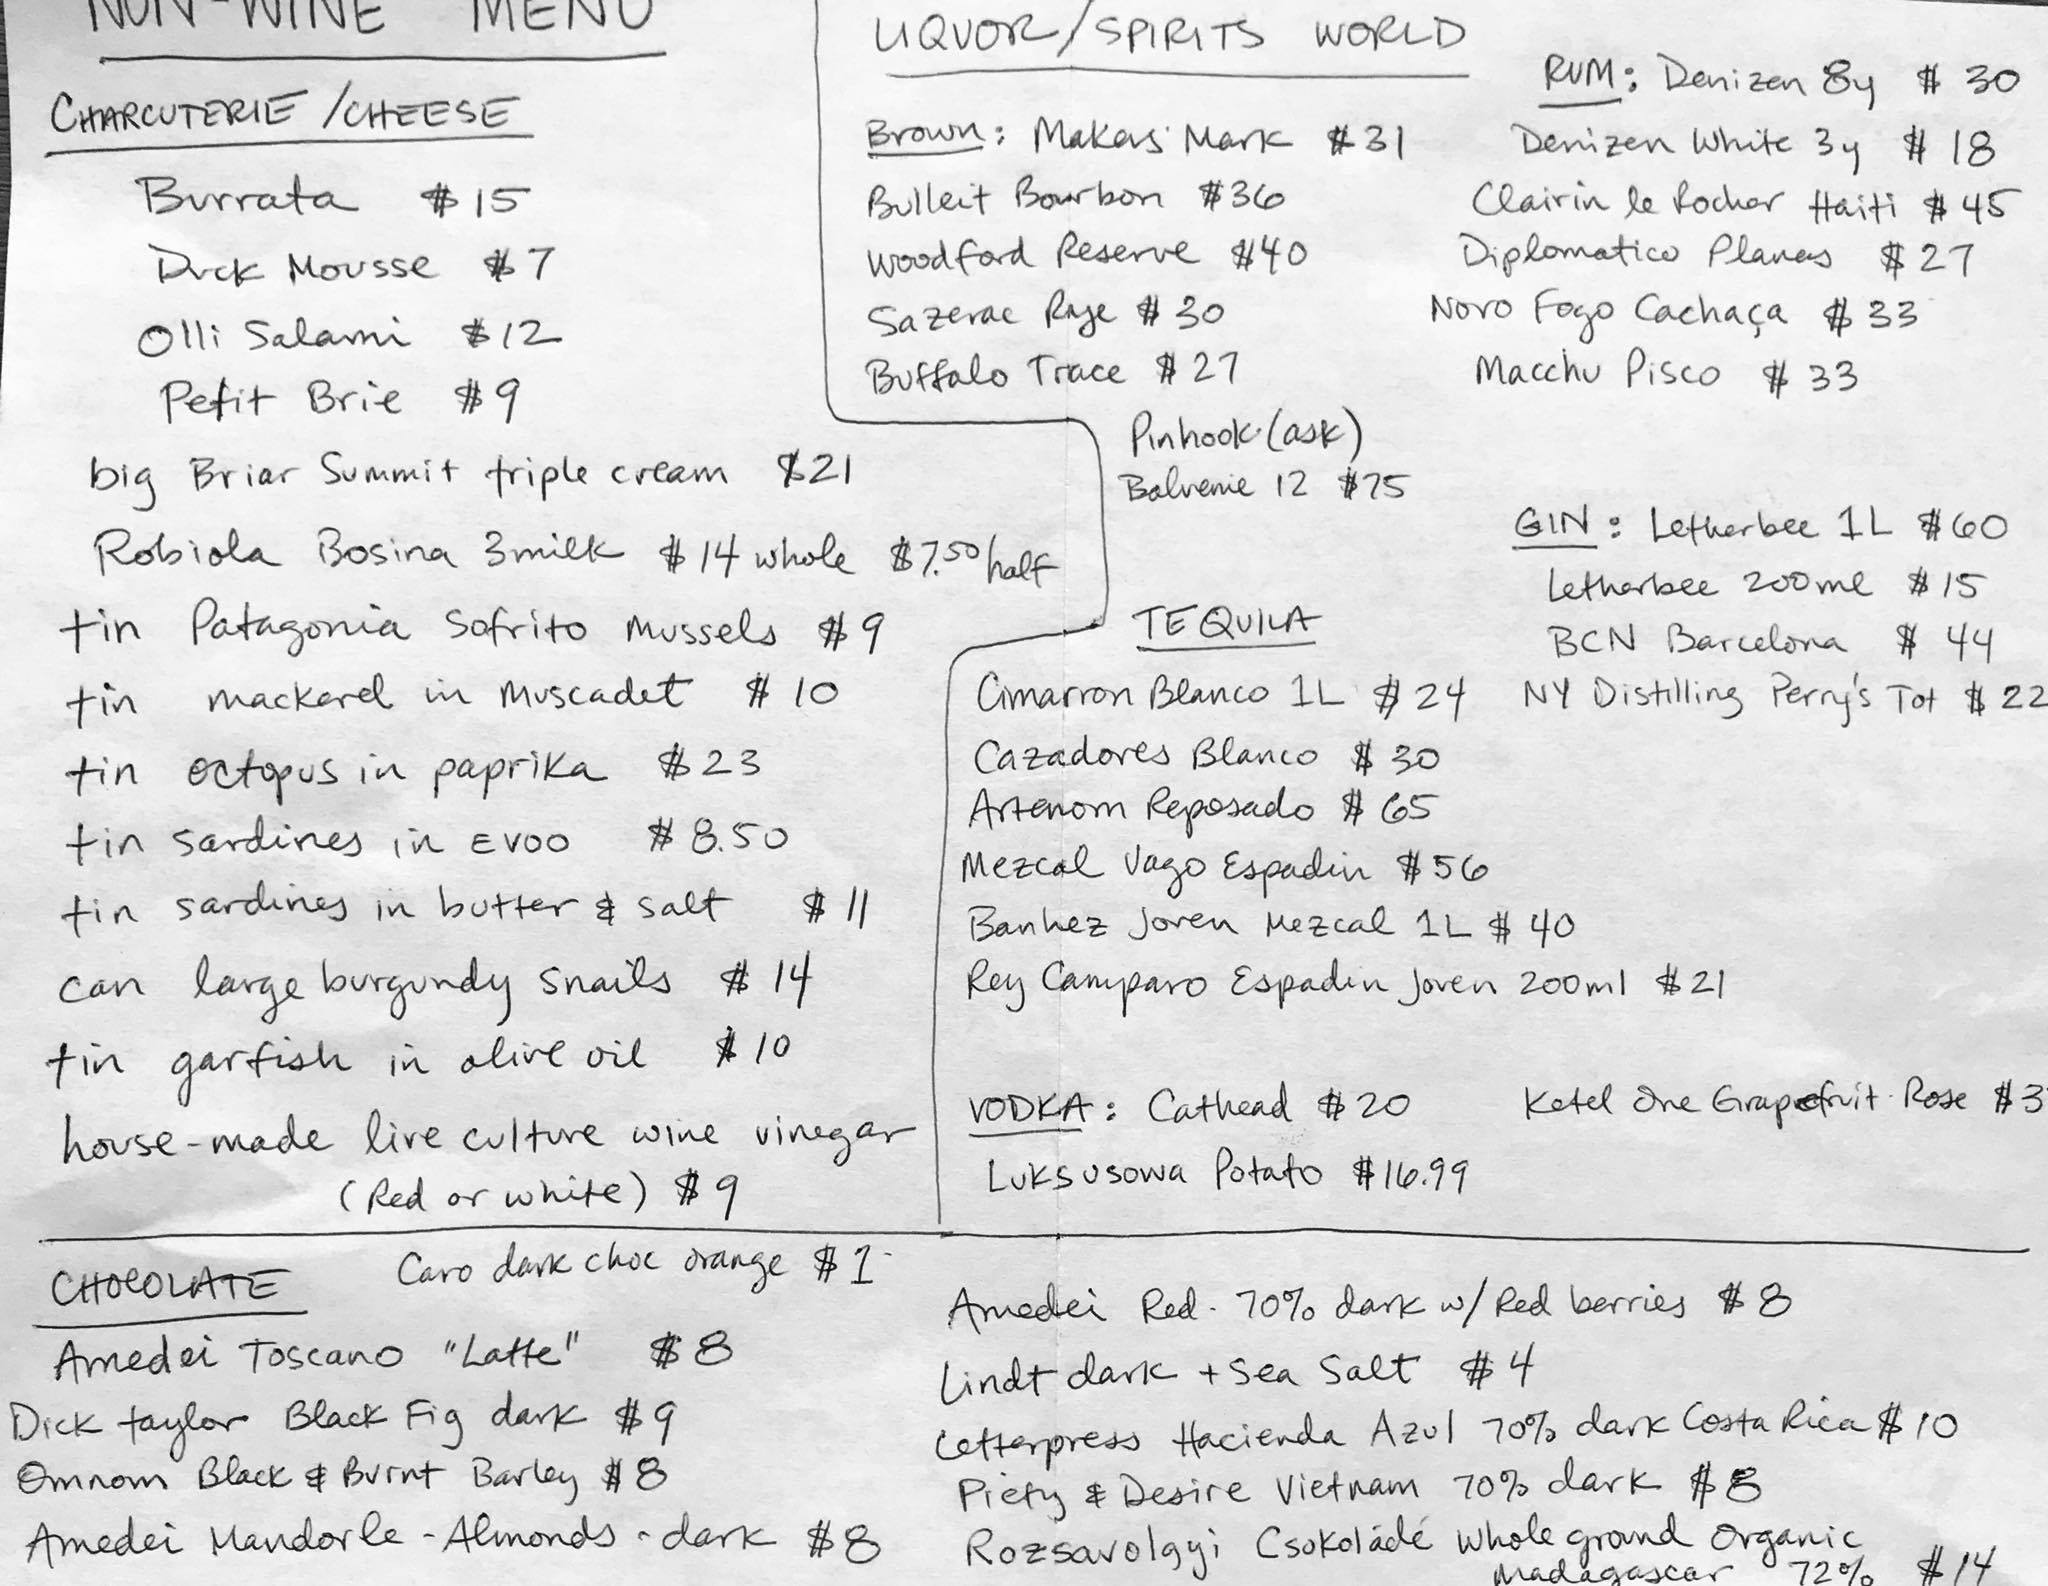 NON-WINE MENU
CHARCUTERIE/CHEESE
Burrata $15
Duck Mousse $7
Olli Salami $12
Petit Brie $9
big Briar Summit triple cream $21
Robiola Bosina 3milk $14 whole $7.50/half
tin Patagonia Sofrito Mussels $9
tin mackerel in Muscadet $10
tin octopus in paprika $23
tin sardines in EVOO $8.50
tin sardines in butter & salt $11
can large burgundy snails $14
tin garfish in olive oil $10
house-made live culture wine vinegar
(Red or white) $9
LIQUOR/SPIRITS WORLD
Brown: Makers Mark $31
Bulleit Bourbon $36
Woodford Reserve $40
Sazerac Rye $30
Buffalo Trace $27
Pinhook (ask)
Balvenie 12 $75
RUM: Denizen 8y $30
Denizen White 3y $18
Clairin le Rocher Haiti $45
Diplomatico Planas $27
Novo Fogo Cachaça $33
Macchu Pisco $33
GIN: Letherbee 1L $60
Letherbee 200ml $15
BCN Barcelona $44
NY Distilling Perry's Tot $22
TEQUILA
Cimarron Blanco 1L $24
Cazadores Blanco $30
Artenom Reposado $65
Mezcal Vago Espadin $56
Banhez Joven Mezcal 1L $40
Rey Camparo Espadin Joven 200ml $21
VODKA: Cathead $20
Luksusowa Potato $16.99
Ketel One Grapefruit-Rose
CHOCOLATE
Caro dark choc orange $1
Amedei Toscano "Latte" $8
Dick taylor Black Fig dark $9
Omnom Black & Burnt Barley $8
Amedei Mandorle - Almonds - dark $8
Amedei Red - 70% dark w/ Red berries $8
Lindt dark + Sea Salt $4
Letterpress Hacienda Azul 70% dark Costa Rica $10
Piety & Desire Vietnam 70% dark $8
Rozsavolgyi Csokoládé whole ground Organic
Madagascar 72% $14